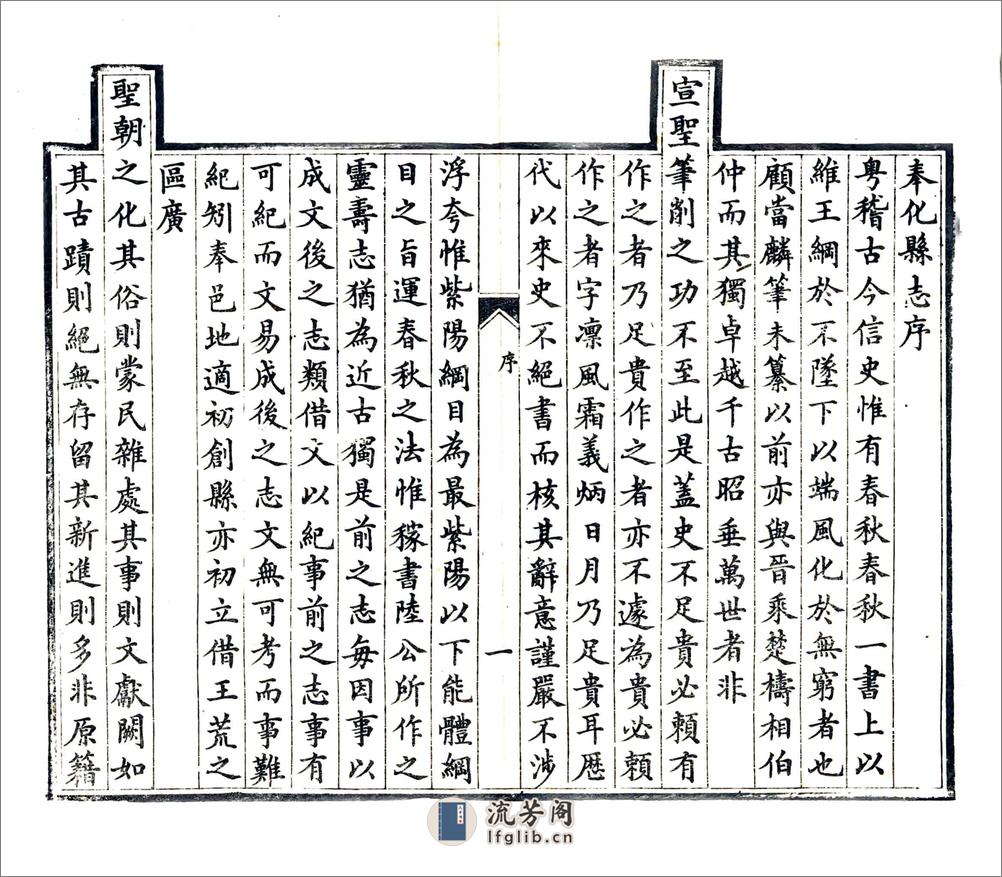 奉化縣志序
粵稽古今信史惟有春秋春秋一書上以
維王綱於不墜下以端風化於無窮者也
顧當麟筆未纂以前亦與晉乘楚檮相伯
仲而其獨卓越千古昭垂萬世者非
宣聖筆削之功不至此是蓋史不足貴必賴有
作之者乃足貴作之者亦不遽為貴必賴
作之者字凛風霜義炳日月乃足貴耳歷
代以來史不絕書而核其辭意謹嚴不涉
序
一
浮夸惟紫陽綱目為最紫陽以下能體綱
目之旨運春秋之法惟稼書陸公所作之
靈壽志猶為近古獨是前之志每因事以
成文後之志類借文以紀事前之志事有
可紀而文易成後之志文無可考而事難
紀矧奉邑地適初創縣亦初立借王荒之
區廣
聖朝之化其俗則蒙民雜處其事則文獻闕如
其古蹟則絕無存留其新進則多非原籍
流芳阁
lfglib.cn